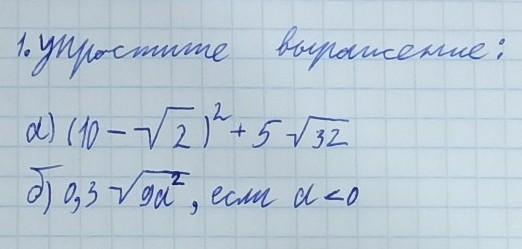 1. Упростите выражение:
а) (10 - √2)² + 5√32
б) 0,3 √9a², если a < 0